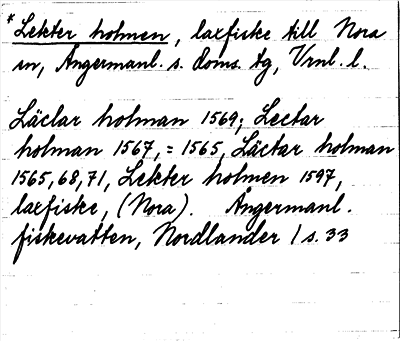 * Lekter holmen, laxfiske till Nora
sn, Ångermanl. s. doms. tg, Vrnl. l.
Läctar holman 1569; Lectar
holman 1567, = 1565, Läctar holman
1565, 68, 71, Lekter holmen 1597,
laxfiske, (Nora). Ångermanl.
fiskevatten, Nordlander / s. 33